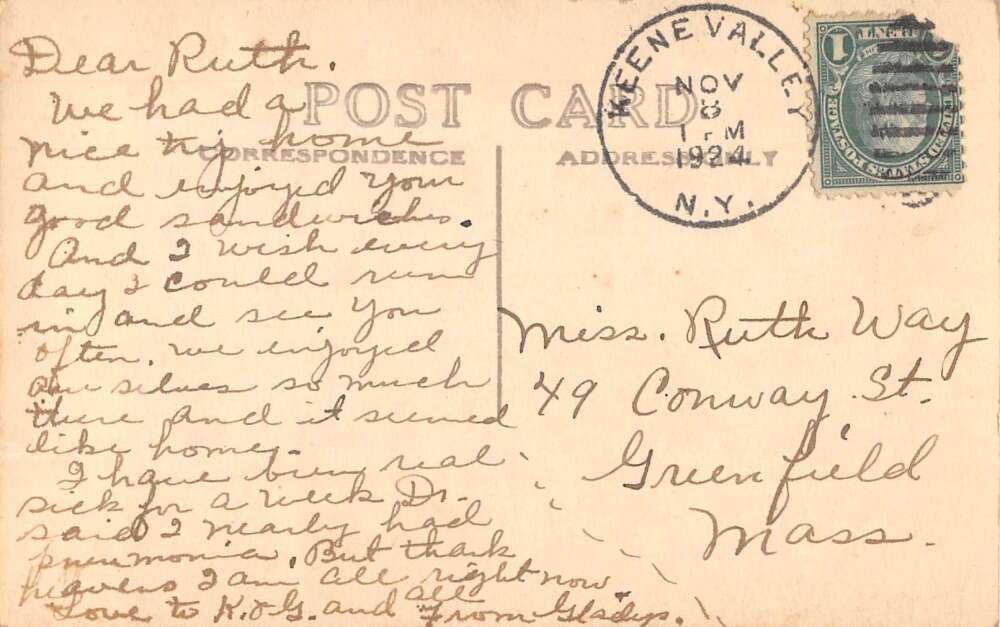 Dear Ruth.
We had a
nice trip home
and enjoyed your
good sandwiches.
And I wish every
day I could run
in and see you
often. We enjoyed
our selves so much
there and it seemed
like home.
I have been real
sick for a week Dr.
said I nearly had
pneumonia. But thank
heavens I am all right now.
Love to K. & G. and all
From Gladys.
POST CARD
CORRESPONDENCE
ADDRESS ONLY
KEENE VALLEY
NOV
8
1 PM
1924
N.Y.
1
Miss. Ruth Way
49 Conway St.
Greenfield
Mass.